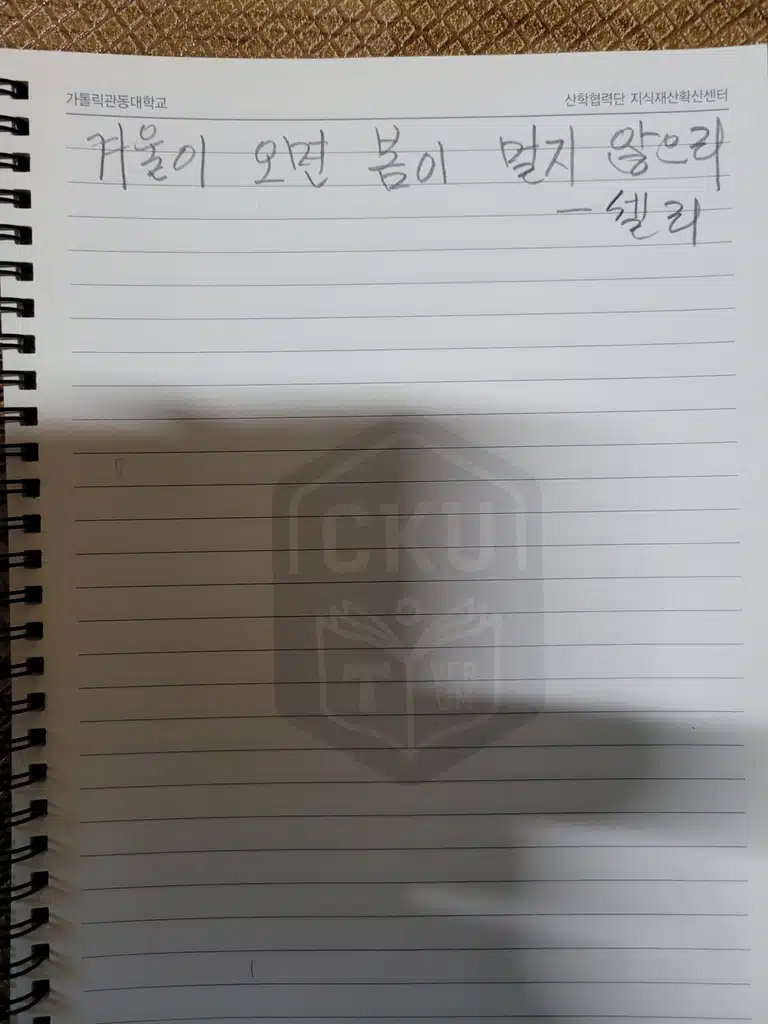 가톨릭관동대학교 산학협력단 지식재산확산센터
겨울이 오면 봄이 멀지 않으리
- 쉘리
CKU
T